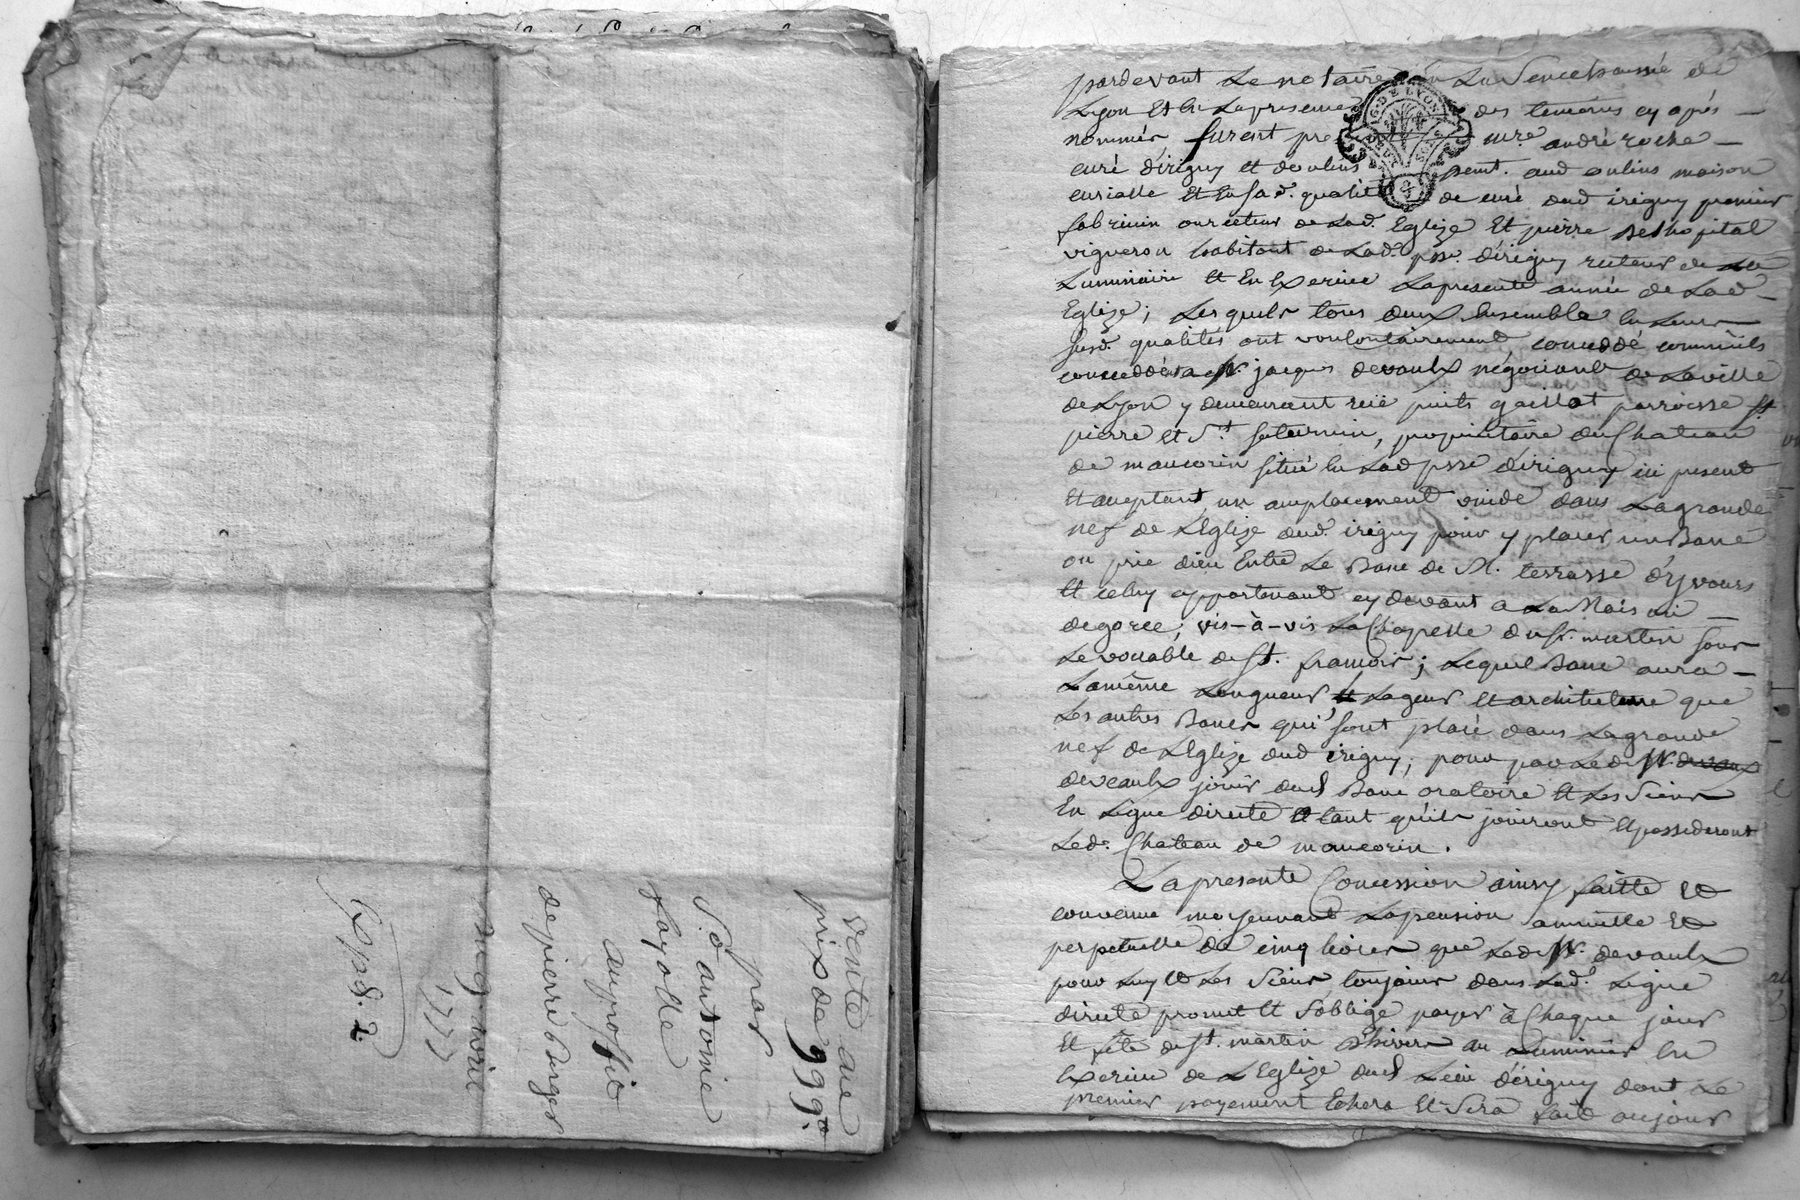 vente au
prix de 999#.
par
S. antoine
fayolle
au proffit
de pierre burger
du 9 avril
1777
Exp. 8. 2.
G. DE LYON
DEUX SOLS
pardevant Le notaire en La Senechaussée de
Lyon Et En Lapresence des temoins cy après
nommés, furent pre mre. andré roche
curé d'irigny et doulins pent. aud oulins maison
curialle Et En sad. qualité de curé dud irigny premier
fabricien ou recteur de Lad. Eglize Et pierre Delhopital
vigneron habitant de Lad. psse. d'irigny recteur de
Luminaire Et En Exercice Lapresente année de Lad
Eglize; Lesquels tous deux Ensemble En Leurs
susd. qualités ont vonlontairement conceddé comm'ils
conceddent a Sr. jacques devaulx négociant de Laville
de Lyon y demeurant rüe puits gaillot parroisse St.
pierre et St. saturnin, propriétaire du Chateau
de maucorin situé En Lad psse d'irigny ici present
Et acceptant, un amplacement vuide dans Lagrande
nef de L'Eglize dud. irigny pour y placer un Banc
ou prie dieu Entre Le Banc de M. terrasse d'yvours
Et celuy appartenant cy devant a La Maison
degorce; vis-à-vis La Chapelle du Sr. martin sous
Le vocable de St. francois; Lequel Banc aura
Lamême Longueur Et Lageur Et architecture que
Les autres Bancs qui sont placé dans Lagrande
nef de L'Eglize dud irigny; pour par Led Sr. devaux
deveaulx jouir dud Banc oratoire Et Les Siens
En Ligne directe Et tant qu'ils jouiront Et possederont
Led. Chateau de maucorin.
La presente Concession ainsy faitte Et
convenue moyennant Lapension annuelle Et
perpetuelle de cinq livres que Led Sr. devaulx
pour Luy Et Les Siens toujours dans Lad. Ligne
directe promet Et s'obbige payer à Chaque jour
Et fête de St. martin d'hivers au Luminier En
Exercice de L'Eglize dud Lieu d'érigny dont Le
premier payement Echera Et Sera fait aujour